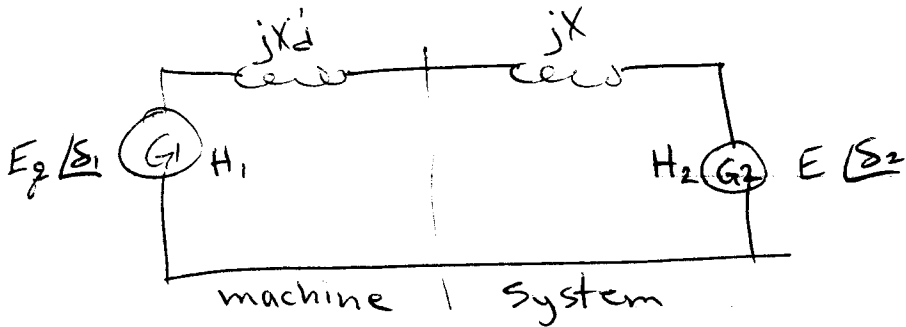 jX'd jX
Eg∠δ1 G1 H1 H2 G2 E∠δ2
machine | system